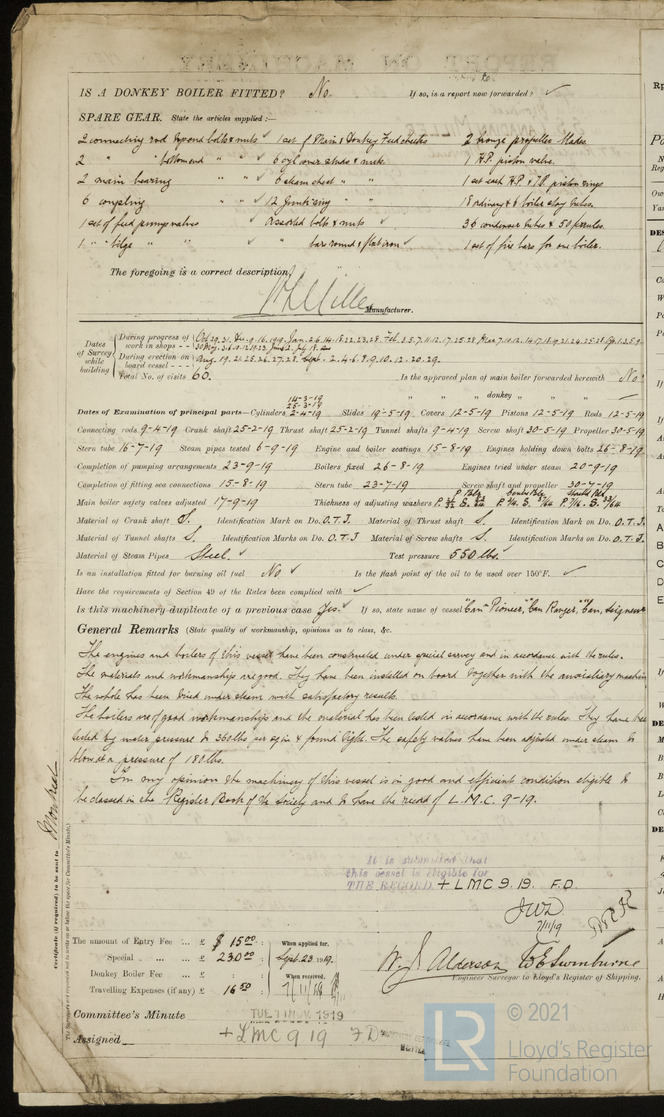 IS A DONKEY BOILER FITTED? No. If so, is a report now forwarded? ✓
SPARE GEAR. State the articles supplied :—
2 connecting rod top end bolts & nuts ✓ 1 set of Main & Donkey Feed checks 2 bronze propeller blades
2 " " bottom end " " ✓ 6 cyl cover studs & nuts 1 H.P. piston valve.
2 main bearing " " ✓ 6 steam chest " " 1 set each H.P. & I.P. piston rings
6 coupling " " ✓ 12 junk ring " " 18 ordinary & 6 boiler stay tubes.
1 set of feed pump valves ✓ Assorted bolts & nuts ✓ 36 condenser tubes & 50 ferrules.
1 " " bilge " " ✓ " bar round & flat iron ✓ 1 set of fire bars for one boiler.
The foregoing is a correct description,
Manufacturer.
Dates of Survey while building
During progress of work in shops - - Oct 29. 31. Dec 9. 16. 19
During erection on board vessel - - - Aug. 19. 21. 25. 26. 27. 28. Sept. 2. 4. 6. 8. 9. 10. 12. 20. 29.
Total No. of visits 60. Is the approved plan of main boiler forwarded herewith No.
" " " donkey " " "
14-3-19
25-3-19
Dates of Examination of principal parts—Cylinders 2-4-19 Slides 19-5-19 Covers 12-5-19 Pistons 12-5-19 Rods 12-5-19
Connecting rods 9-4-19 Crank shaft 25-2-19 Thrust shaft 25-2-19 Tunnel shafts 9-4-19 Screw shaft 30-5-19 Propeller 30-5-19
Stern tube 16-7-19 Steam pipes tested 6-9-19 Engine and boiler seatings 15-8-19 Engines holding down bolts 26-8-19
Completion of pumping arrangements 23-9-19 Boilers fixed 26-8-19 Engines tried under steam 20-9-19
Completion of fitting sea connections 15-8-19 Stern tube 23-7-19 Screw shaft and propeller 30-7-19
Main boiler safety valves adjusted 17-9-19 Thickness of adjusting washers
Material of Crank shaft S. Identification Mark on Do. O.T.J. Material of Thrust shaft S. Identification Mark on Do. O.T.J.
Material of Tunnel shafts S. Identification Marks on Do. O.T.J Material of Screw shafts S. Identification Marks on Do. O.T.J.
Material of Steam Pipes Steel ✓ Test pressure 550 lbs. ✓
Is an installation fitted for burning oil fuel No ✓ Is the flash point of the oil to be used over 150°F. ✓
Have the requirements of Section 49 of the Rules been complied with ✓
Is this machinery duplicate of a previous case Yes. ✓ If so, state name of vessel "Can. Pioneer", "Can Ranger," "Can. Seigneur
General Remarks (State quality of workmanship, opinions as to class, &c.
The engines and boilers of this vessel have been constructed under special survey and in accordance with the rules.
The materials and workmanship are good. They have been installed on board together with the auxiliary machin
The whole has been tried under steam with satisfactory results.
The boilers are of good workmanship and the material has been tested in accordance with the rules. They have been
tested by water pressure to 360 lbs per sq in & found tight. The safety valves have been adjusted under steam to
blow at a pressure of 180 lbs.
In my opinion the machinery of this vessel is in good and efficient condition eligible to
be classed in the Register Book of the Society and to have the record of L.M.C. 9-19.
It is submitted that
this vessel is eligible for
THE RECORD. + LMC 9.19. F.D.
JWD
7/11/19
Certificate (if required) to be sent to Montreal
The Surveyors are requested not to write on or below the space for Committee's Minute.
The amount of Entry Fee ... £ $ 15.00 : When applied for,
Special ... ... £ 230.00 : Sept. 23. 1919.
Donkey Boiler Fee ... £ : : When received,
Travelling Expenses (if any) £ 16.50 : 7/11/19
W. J. Alderson W E Swinburne
Engineer Surveyor to Lloyd's Register of Shipping.
Committee's Minute TUE 11 NOV 1919
Assigned + LMC 9 19 FD
LR
© 2021
Lloyd's Register
Foundation